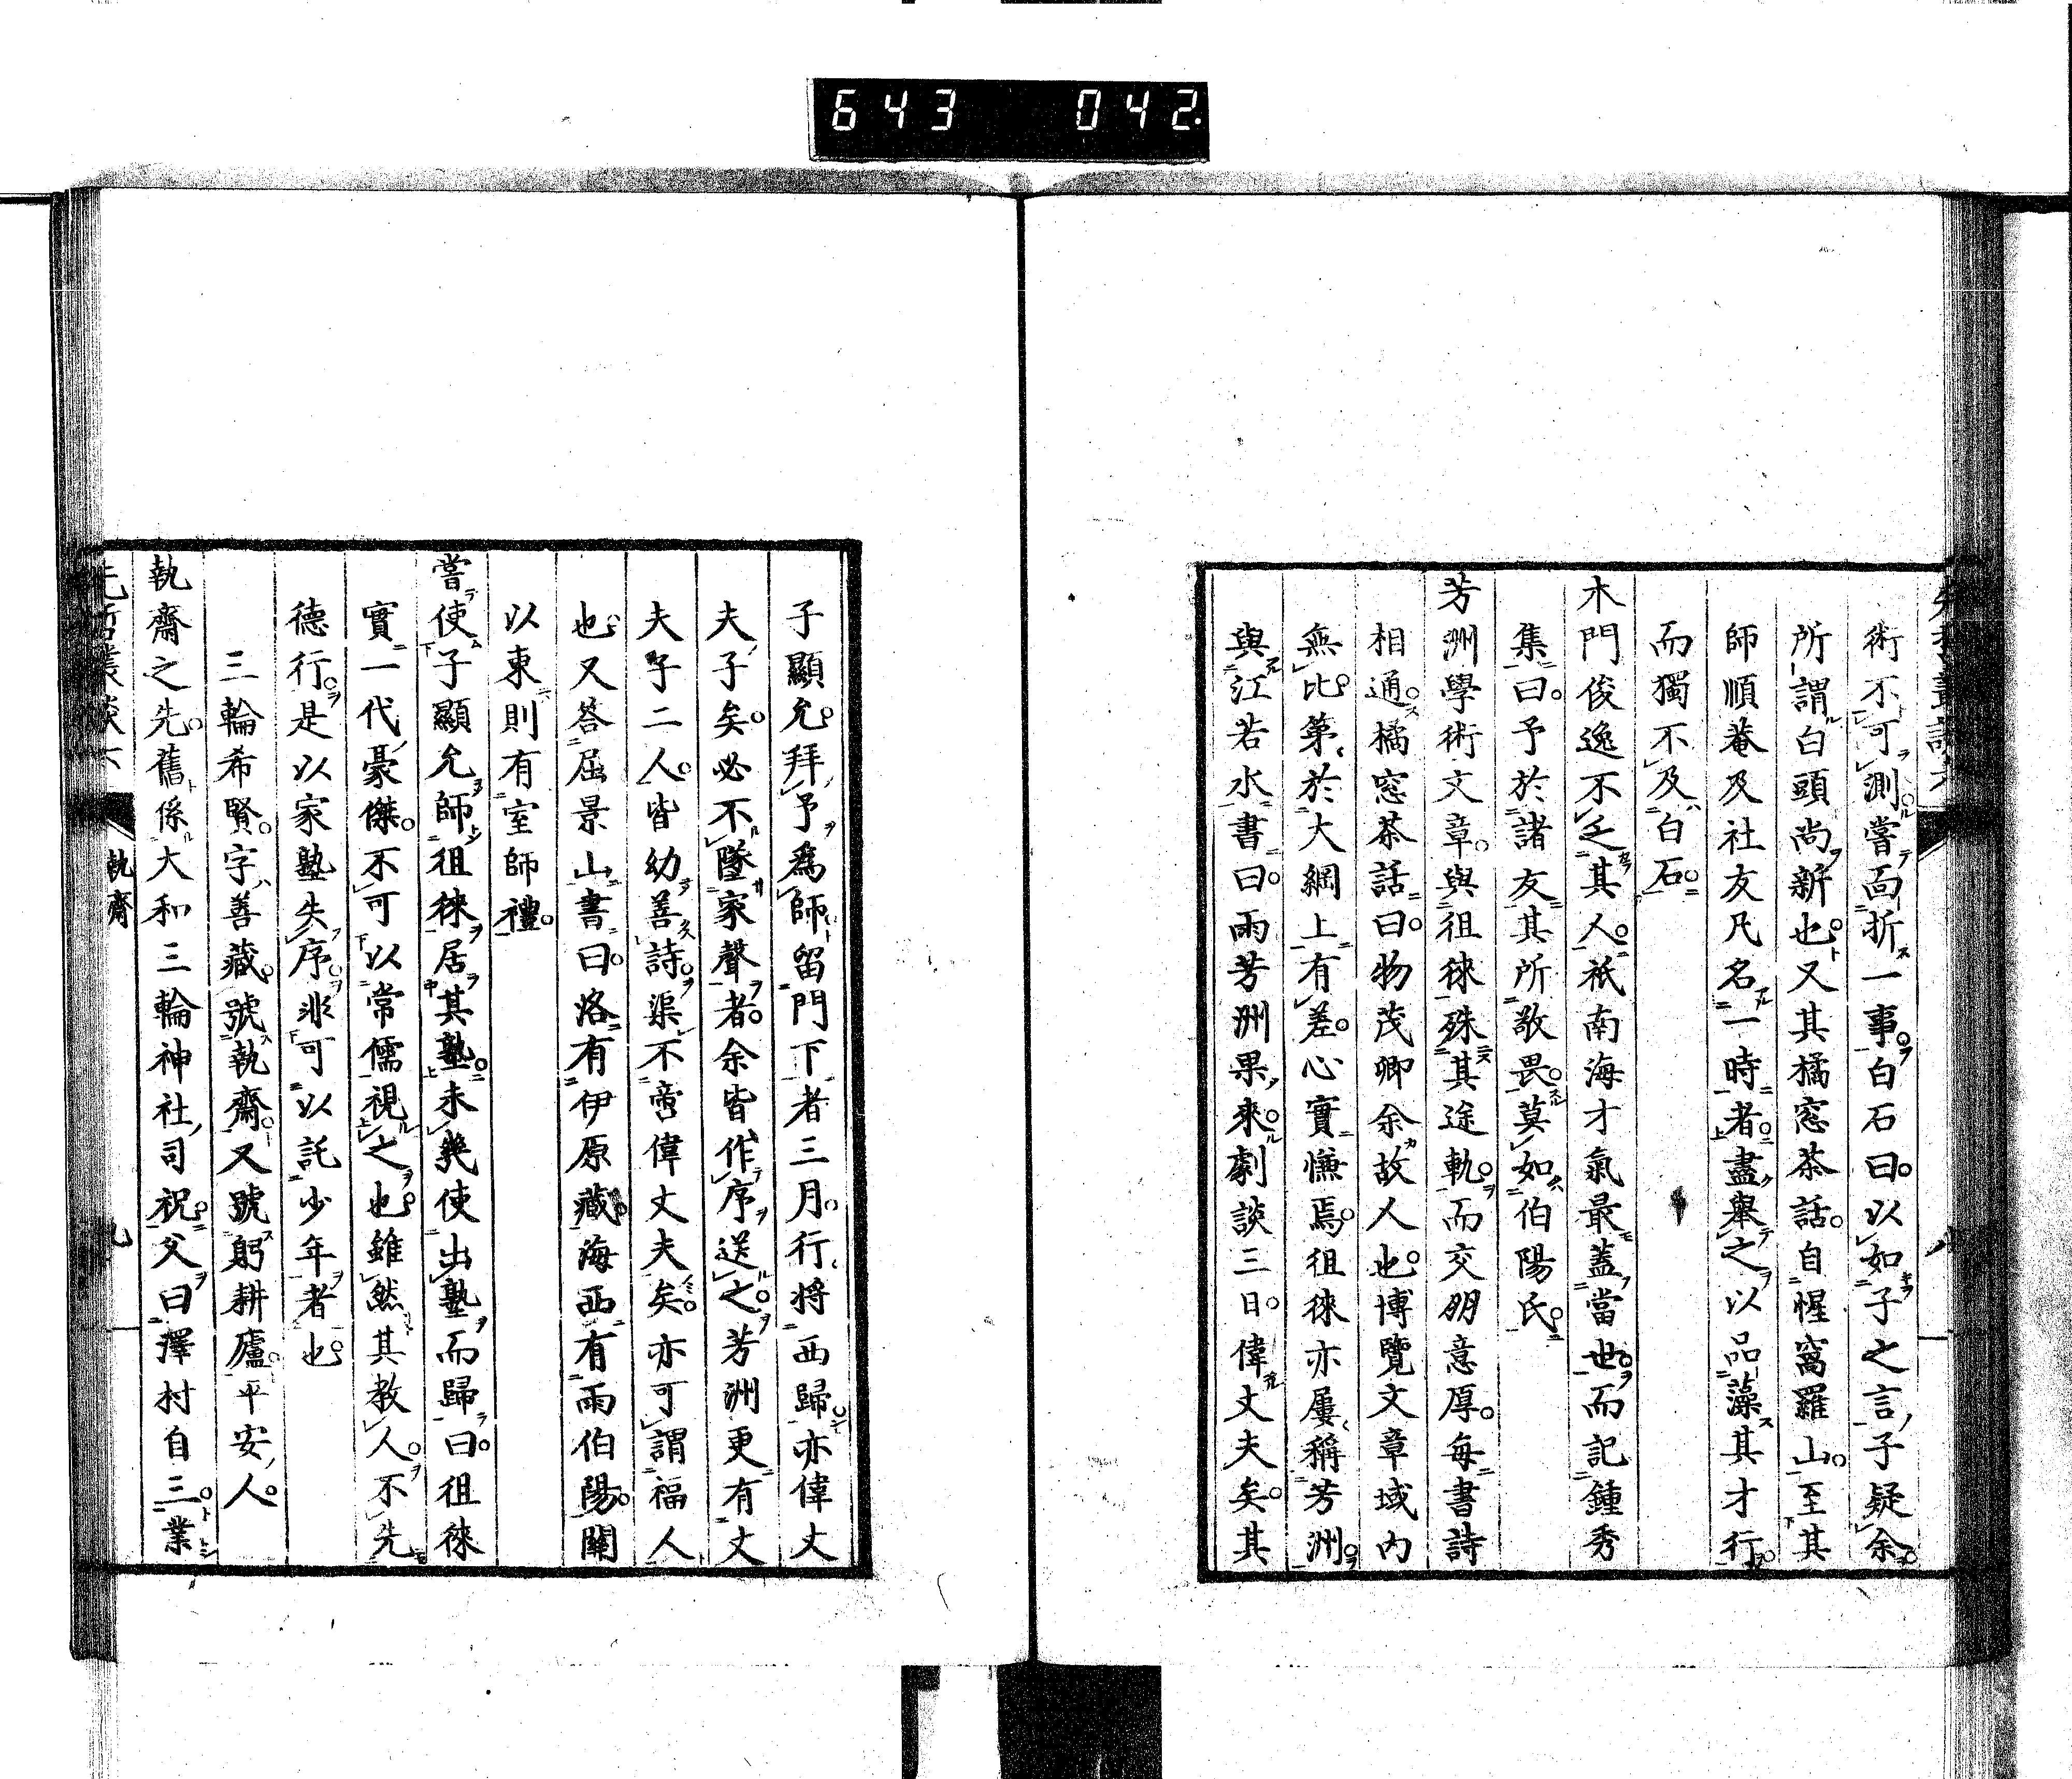 643 042.
術不可測嘗面折一事白石曰以如子之言子疑余
所謂白頭尚新也又其橘窓茶話自惺窩羅山至其
師順菴及社友凡名一時者盡舉之以品藻其才行
而獨不及白石
木門俊逸不乏其人祇南海才氣最蓋當世而記鍾秀
集曰予於諸友其所敬畏莫如伯陽氏
芳洲學術文章與徂徠殊其途軌而交朋意厚每書詩
相通橘窓茶話曰物茂卿余故人也博覽文章域內
無比第於大綱上有差心實慊焉徂徠亦屢稱芳洲
與江若水書曰雨芳洲果來劇談三日偉丈夫矣其
子顯允拜予爲師留門下者三月行將西歸亦偉丈
夫子矣必不墜家聲者余皆作序送之芳洲更有丈
夫子二人皆幼善詩渠不啻偉丈夫矣亦可謂福人
也又答屈景山書曰洛有伊原藏海西有雨伯陽關
以東則有室師禮
嘗使子顯允師徂徠居其塾未幾使出塾而歸曰徂徠
實一代豪傑不可以常儒視之也雖然其教人不先
德行是以家塾失序非可以託少年者也
三輪希賢字善藏號執齋又號躬耕廬平安人
執齋之先舊係大和三輪神社司祝父曰澤村自三業
執齋
九